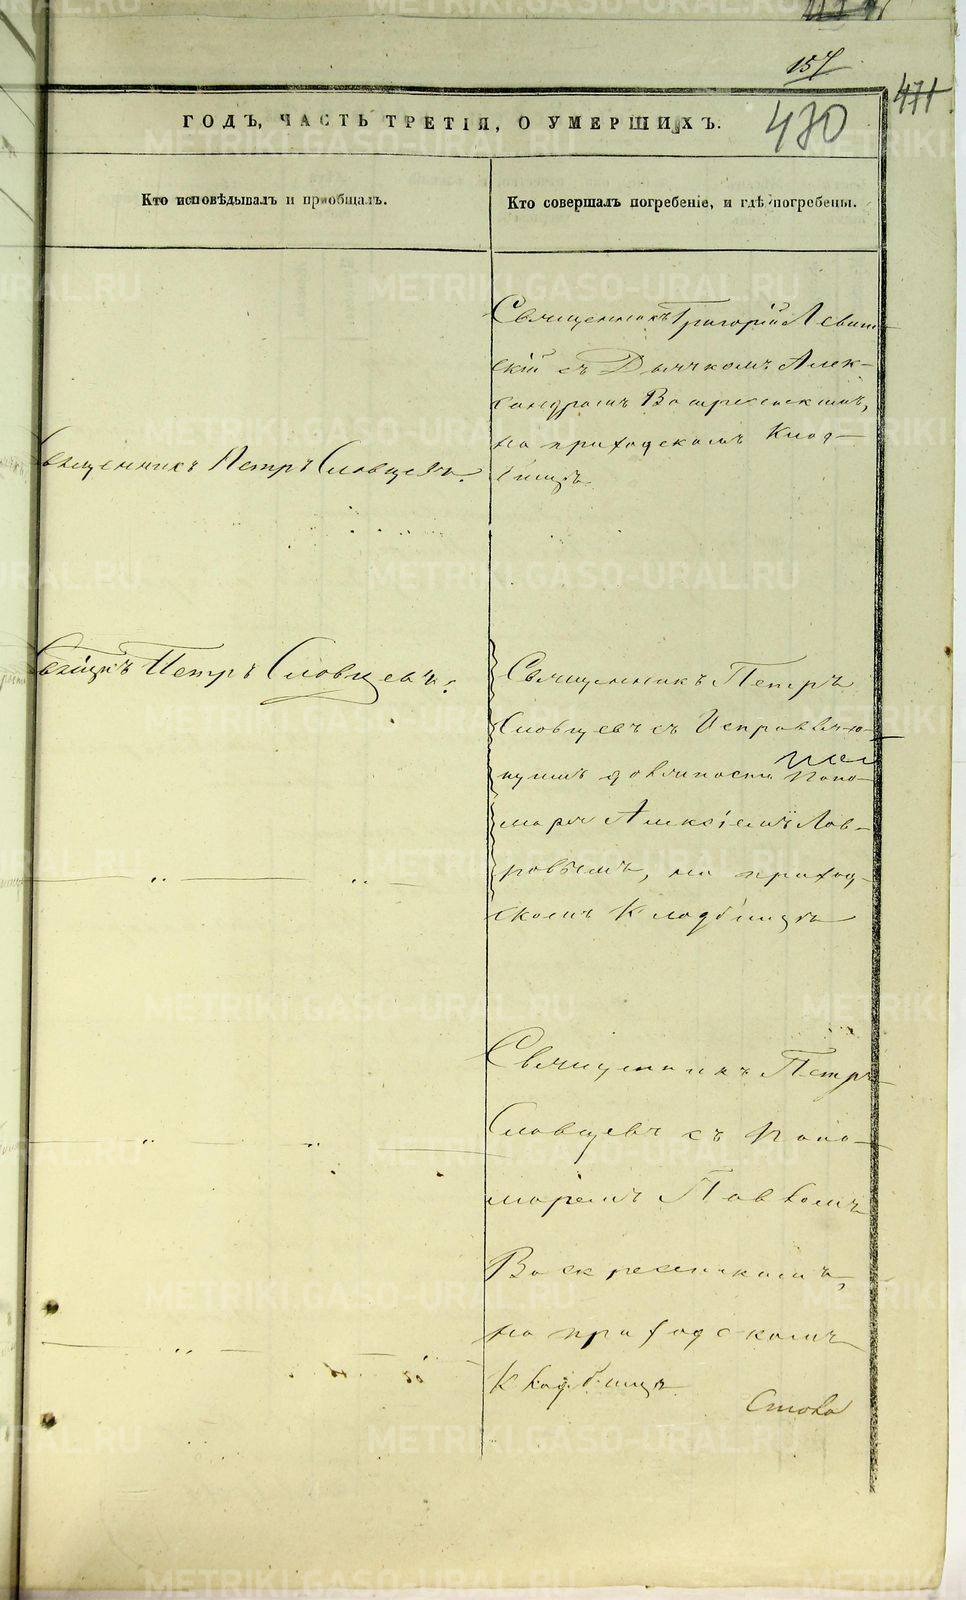 157
471
470
ГОДЪ, ЧАСТЬ ТРЕТІЯ, О УМЕРШИХЪ.
Кто исповѣдывалъ и пріобщалъ.
Кто совершалъ погребеніе, и гдѣ погребены.
Священникъ Григорій Левит-
скій съ Дьячкомъ Алек-
сандромъ Воскресенскимъ,
на приходскомъ Клад-
бищѣ
Священникъ Петръ Словцевъ.
Петръ Словцевъ.
Священникъ Петръ
Словцевъ съ Исправляю-
щимъ должность Поно-
маря Алексѣемъ Лав-
ровымъ, на приход-
скомъ Кладбищѣ
Священникъ Петръ
Словцевъ съ Поно-
маремъ Павломъ
Воскресенскимъ,
на приходскомъ
Кладбищѣ
METRIKI.GASO-URAL.RU